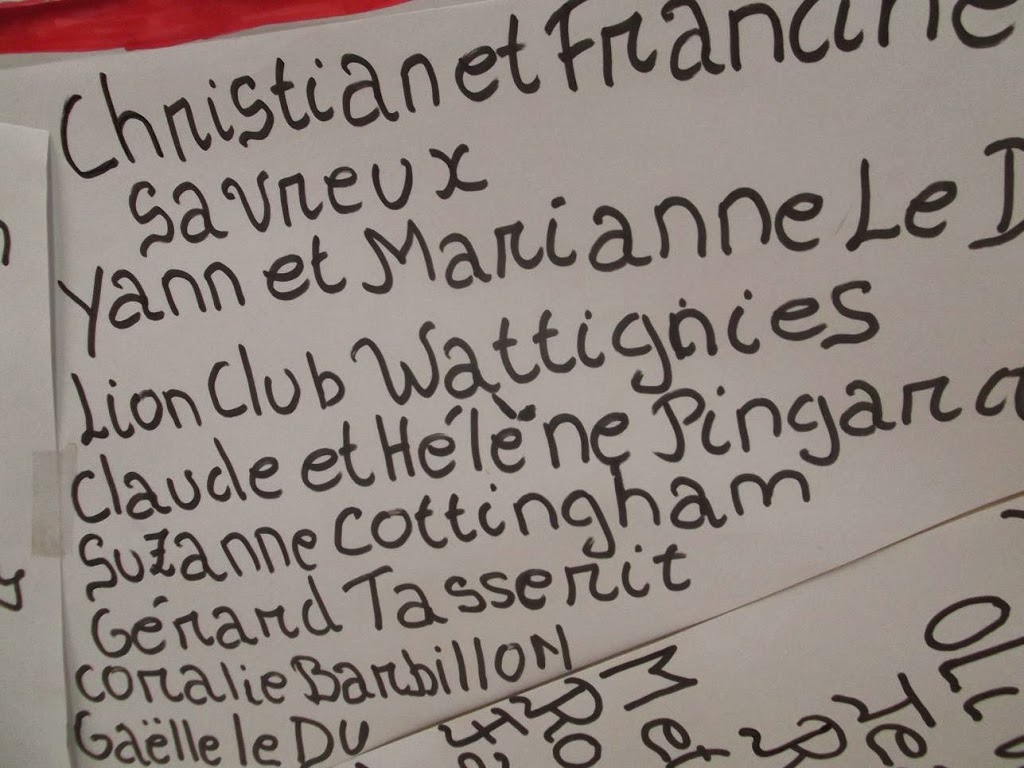 Christian et Francine
Savreux
Yann et Marianne Le D
Lion Club Wattignies
Claude et Hélène Pingara
Suzanne Cottingham
Gérard Tasserit
Coralie Barbillon
Gaëlle le DU